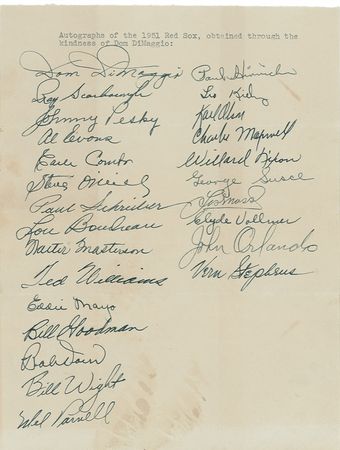 Autographs of the 1951 Red Sox, obtained through the
kindness of Dom DiMaggio:
Dom DiMaggio
Ray Scarborough
Johnny Pesky
Al Evans
Earle Combs
Steve O'Neill
Paul Schreiber
Lou Boudreau
Walter Masterson
Ted Williams
Eddie Mayo
Bill Goodman
Bob Doerr
Bill Wight
Mel Parnell
Paul Hinrichs
Leo Kiely
Karl Olson
Charlie Maxwell
Willard Nixon
George Susce
Les Moss
Clyde Vollmer
John Orlando
Vern Stephens